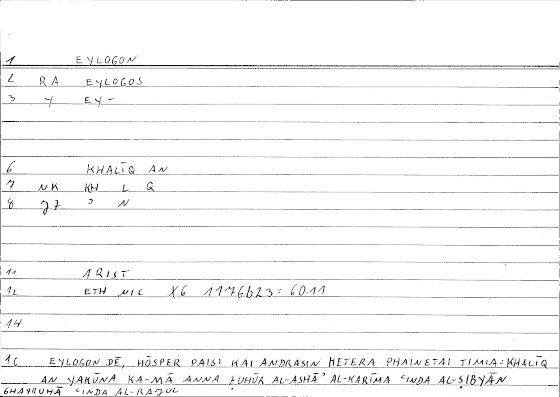 1 EYLOGON
2 RA EYLOGOS
3 Y EY-
6 KHALĪQ AN
7 NK KH L Q
8 JZ ʾ N
11 ARIST
12 ETH NIC X6 1176b23 = 6011
14
16 EYLOGON DĒ, HŌSPER PAISI KAI ANDRASIN HETERA PHAINETAI TIMIA = KHALĪQ
AN YAKŪNA KA-MĀ ANNA ẒUHŪR AL-ASHĀʾ AL-KARĪMA ʿINDA AL-ṢIBYĀN
GHAYRUHĀ ʿINDA AL-RAJUL